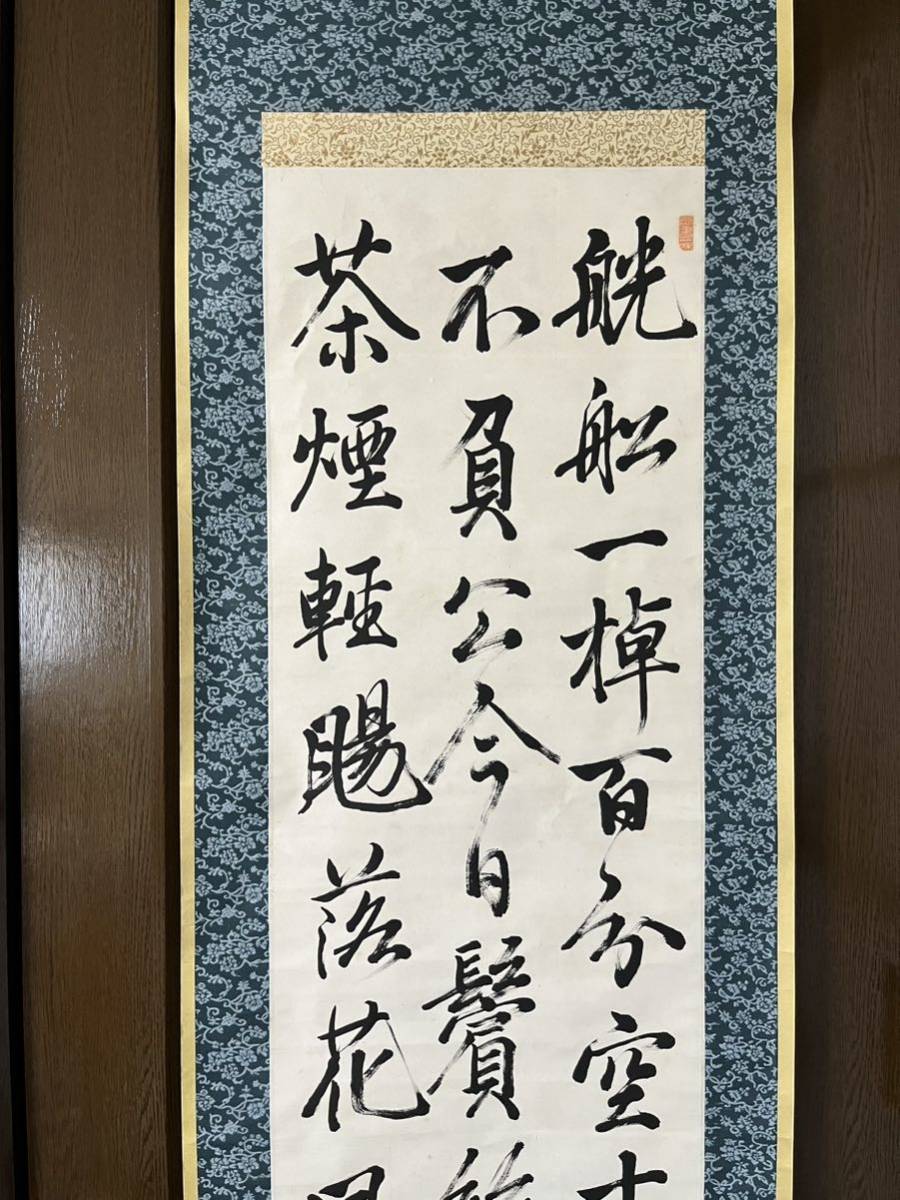 觥船一棹百分空十
不負公今日鬢絲
茶煙輕颺落花風